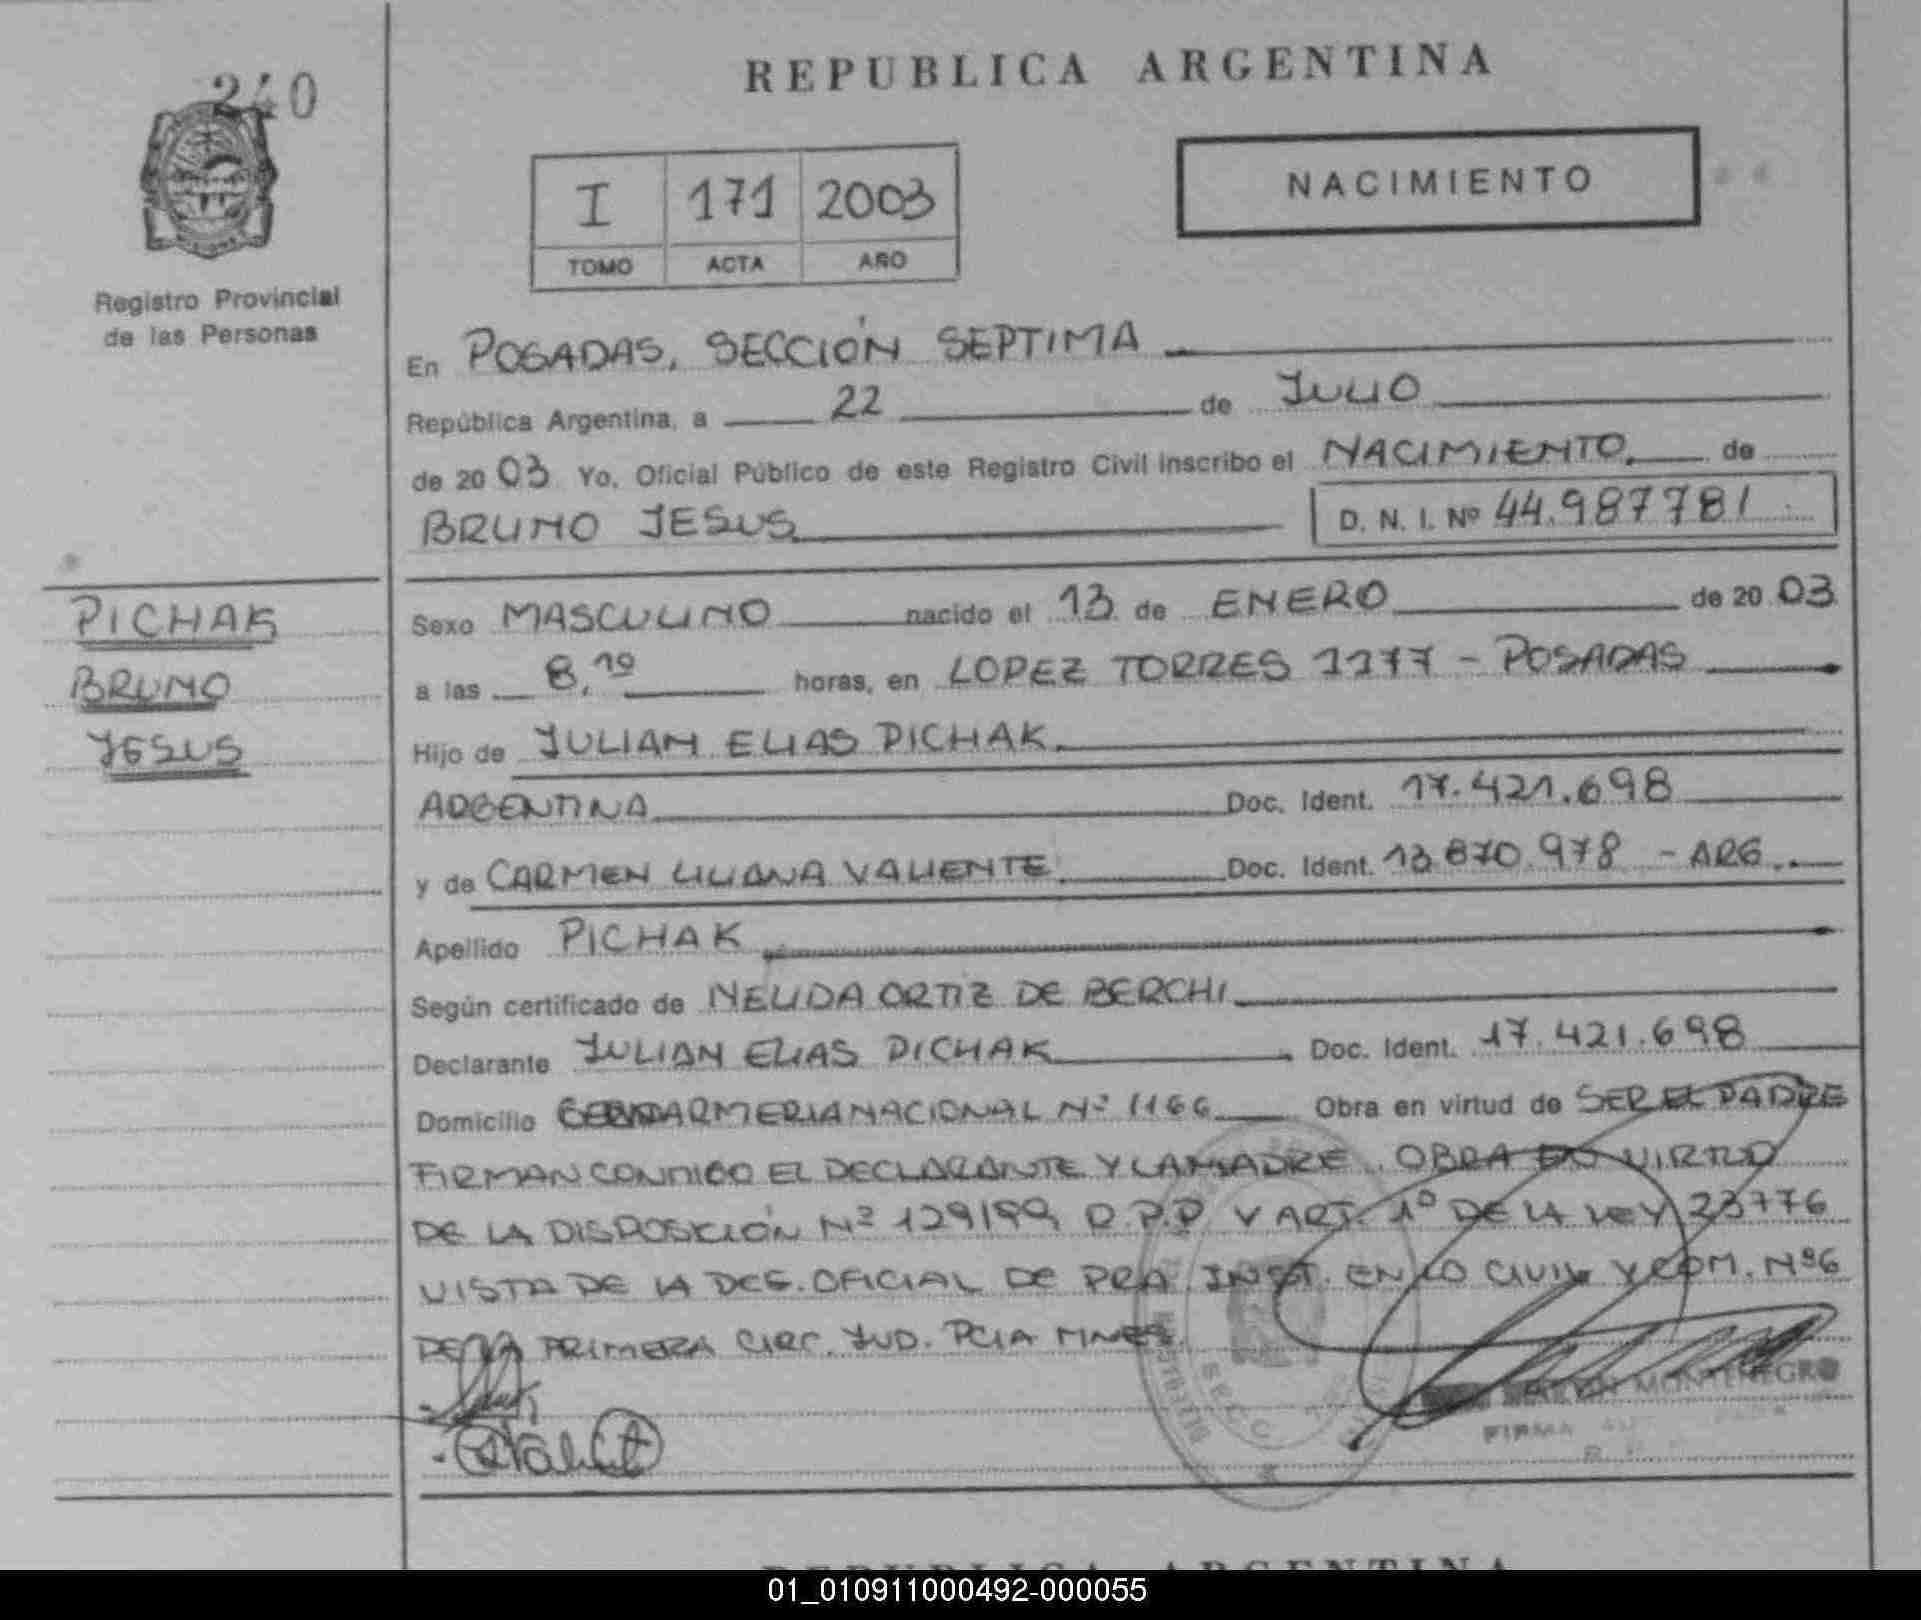 240
REPUBLICA ARGENTINA
I 171 2003
TOMO ACTA AÑO
NACIMIENTO
Registro Provincial
de las Personas
En POSADAS, SECCIÓN SEPTIMA
República Argentina, a 22 de JULIO
de 2003 Yo, Oficial Público de este Registro Civil inscribo el NACIMIENTO de
BRUNO JESUS D. N. I. Nº 44.987781
PICHAK
BRUNO
JESUS
Sexo MASCULINO nacido el 13 de ENERO de 2003
a las 8,10 horas, en LOPEZ TORRES 1177 - POSADAS
Hijo de JULIAN ELIAS PICHAK
ARGENTINA Doc. Ident. 17.421.698
y de CARMEN LILIANA VALIENTE Doc. Ident. 13.870.978 - ARG.
Apellido PICHAK
Según certificado de NELIDA ORTIZ DE BERCHI
Declarante JULIAN ELIAS PICHAK Doc. Ident. 17.421.698
Domicilio GENDARMERIA NACIONAL Nº 1166 Obra en virtud de SER EL PADRE
FIRMAN CONMIGO EL DECLARANTE Y LA MADRE. OBRA EN VIRTUD
DE LA DISPOSICIÓN Nº 129/99 R.P.P Y ART. 1º DE LA LEY 23776
VISTA DE LA DEG. OFICIAL DE PRA. INST. EN LO CIVIL Y COM. Nº6
DE LA PRIMERA CIRC. JUD. PCIA MNES.
MONTENEGRO
FIRMA
REPUBLICA ARGENTINA
01_010911000492-000055